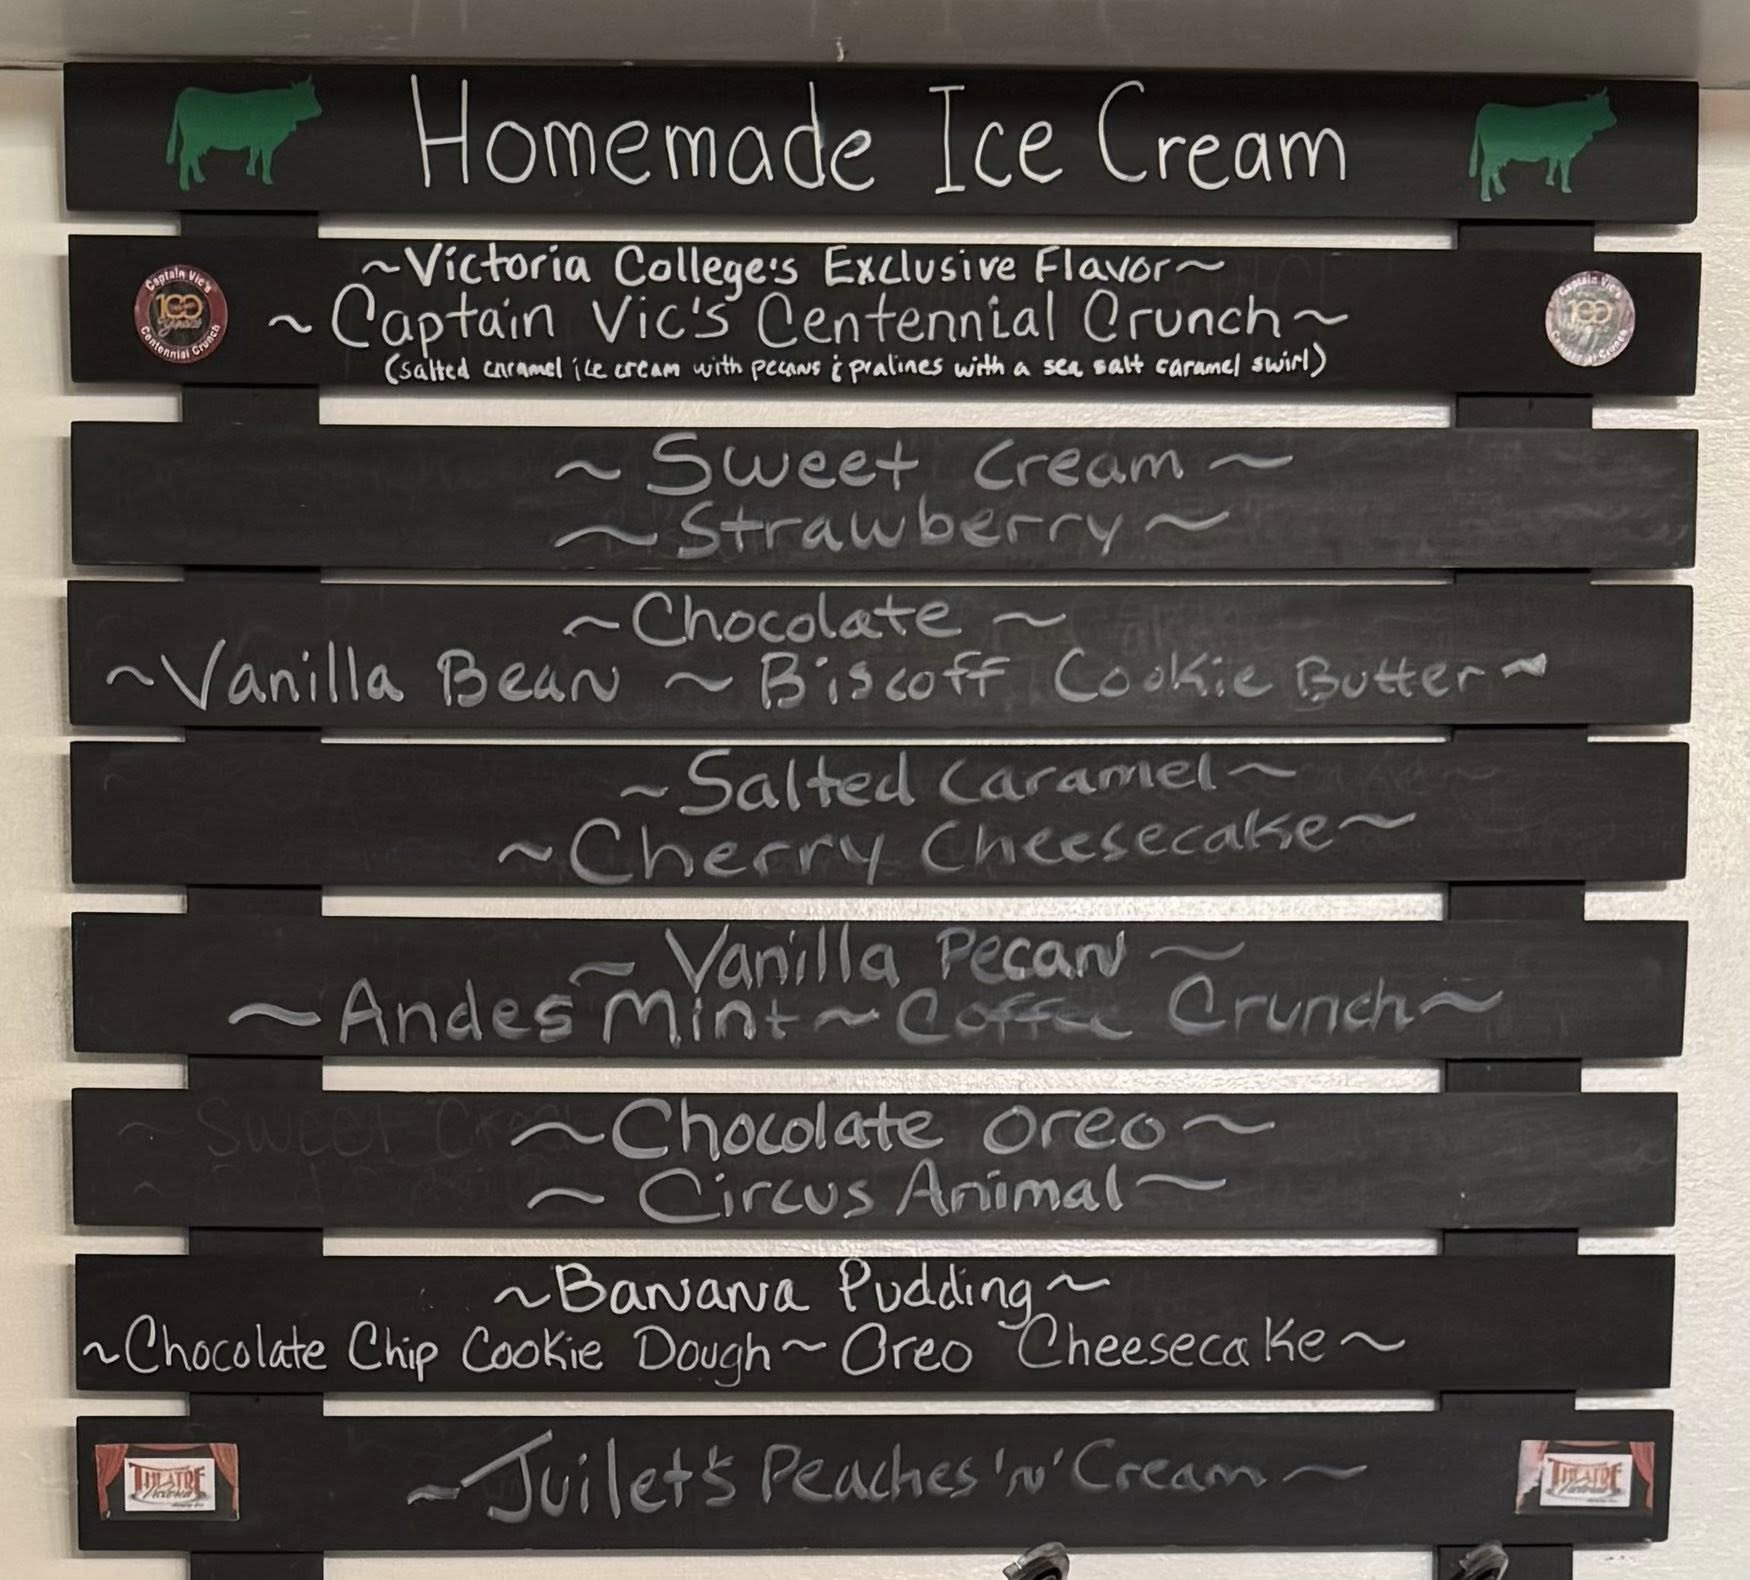 Homemade Ice Cream
~Victoria College's Exclusive Flavor~
Captain Vic's
100
Years
Centennial Crunch
~Captain Vic's Centennial Crunch~
Captain Vic's
100
(salted caramel ice cream with pecans & pralines with a sea salt caramel swirl)
~Sweet Cream~
~Strawberry~
~Chocolate~
~Vanilla Bean ~ Biscoff Cookie Butter~
~Salted Caramel~
~Cherry Cheesecake~
~Vanilla Pecan~
~Andes Mint~Coffee Crunch~
~Sweet Crea
~Chocolate Oreo~
~Circus Animal~
~Banana Pudding~
~Chocolate Chip Cookie Dough~Oreo Cheesecake~
THEATRE
Victoria
~Juilet's Peaches 'n' Cream~
THEATRE
Victoria